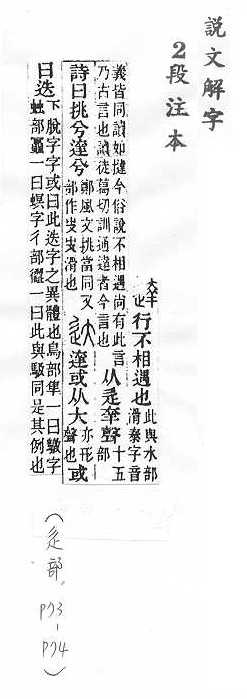 說文解字
2段注本
大羊
也行不相遇也此與水部滑泰字音
義皆同讀如撻今俗說不相遇尚有此言乃古言也讀徒葛切訓通達者今言也从辵羍聲十五部
詩曰挑兮達兮鄭風文挑當同又部作叏叏滑也达達或从大亦形聲也或
曰迭下脫字字或曰此迭字之異體也鳥部隼一曰字䖵部一曰螟字彳部一曰此與同是其例也
(辵部, P73-P74)